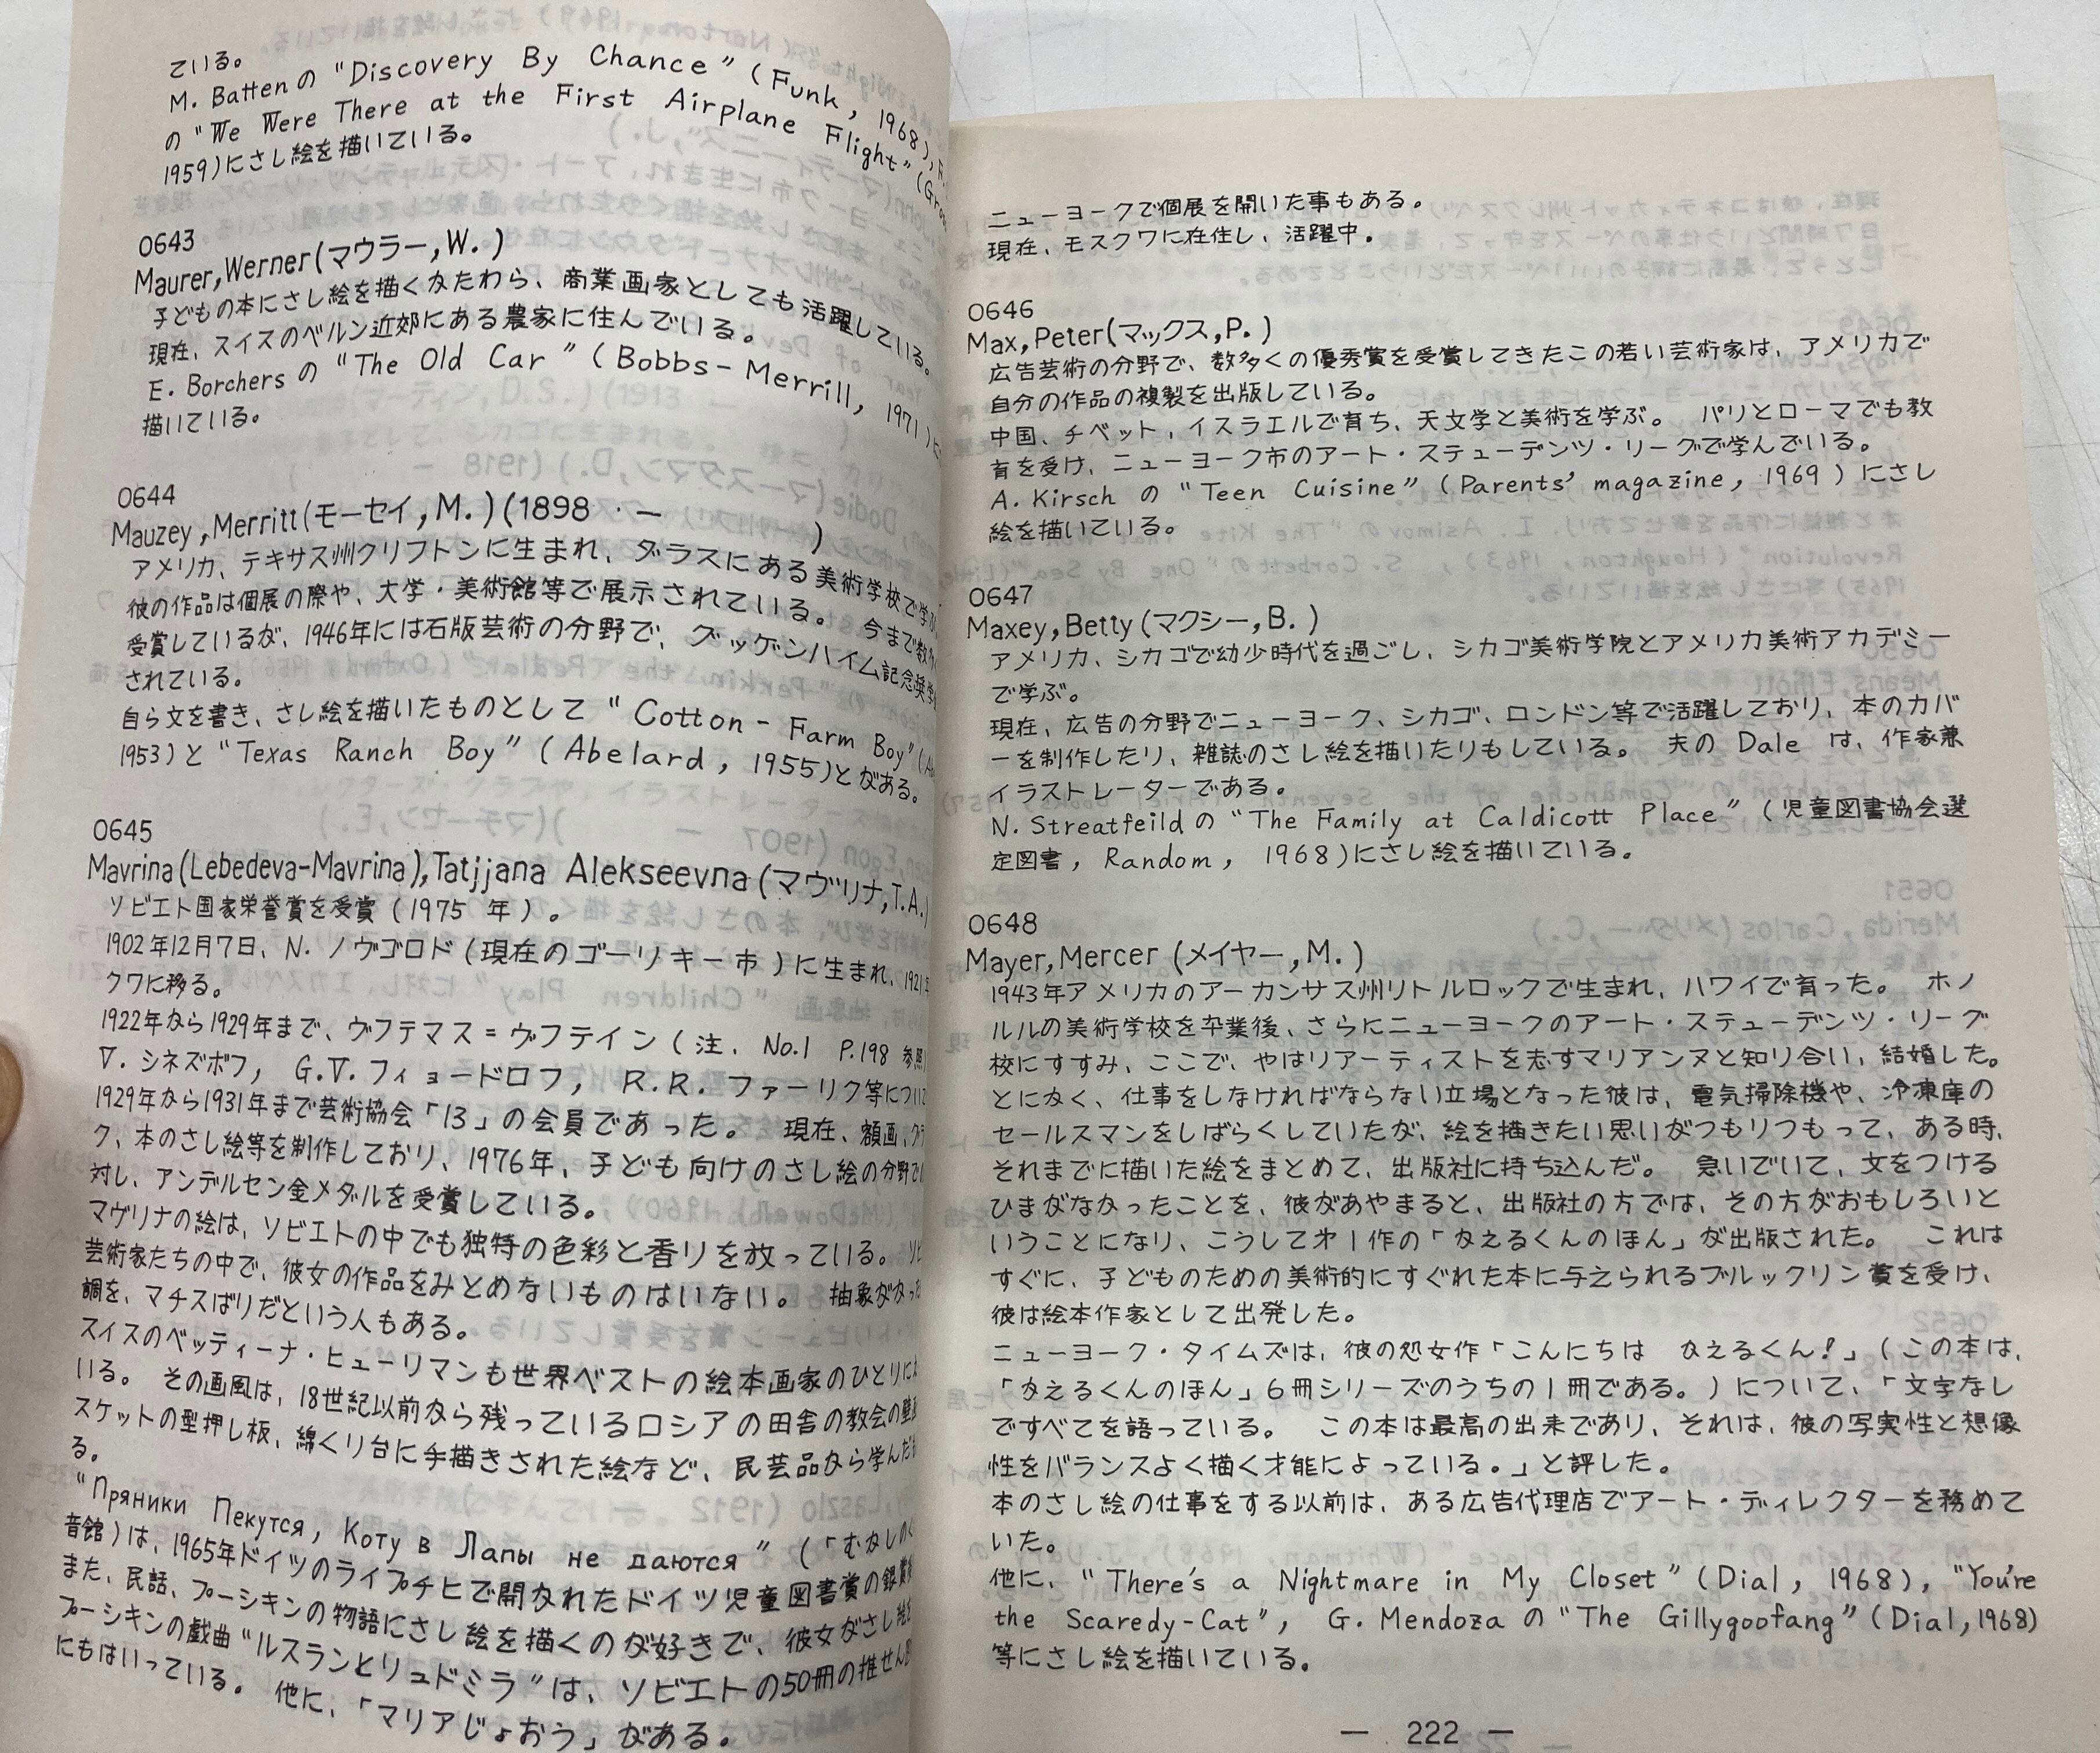 ている。
M. Battenの "Discovery By Chance" (Funk, 1968),
の "We Were There at the First Airplane Flight" (
1959)にさし絵を描いている。
0643
Maurer,Werner(マウラー,W.)
子どもの本にさし絵を描くかたわら、商業画家としても活躍している。
現在、スイスのベルン近郊にある農家に住んでいる。
E. Borchers の "The Old Car" (Bobbs-Merrill, 1971)に
描いている。
0644
Mauzey,Merritt(モーセイ,M.)(1898 - )
アメリカ、テキサス州クリフトンに生まれ、ダラスにある美術学校で学
彼の作品は個展の際や、大学・美術館等で展示されている。 今まで数
受賞しているが、1946年には石版芸術の分野で、グッゲンハイム記念奨学
されている。
自ら文を書き、さし絵を描いたものとして "Cotton-Farm Boy"(
1953)と "Texas Ranch Boy" (Abelard, 1955)とがある。
0645
Mavrina(Lebedeva-Mavrina),Tatjjana Alekseevna(マヴリナ,T.A.)
ソビエト国家栄誉賞を受賞(1975 年)。
1902年12月7日、N. ノヴゴロド(現在のゴーリキー市)に生まれ、1921
クワに移る。
1922年から1929年まで、ヴフテマス=ヴフテイン(注. No.1 P.198 参照
V. シネズボフ, G.V. フィョードロフ, R.R. ファーリク等につい
1929年から1931年まで芸術協会「13」の会員であった。 現在、額画、
ク、本のさし絵等を制作しており、1976年、子ども向けのさし絵の分野で
対し、アンデルセン金メダルを受賞している。
マヴリナの絵は、ソビエトの中でも独特の色彩と香りを放っている。
芸術家たちの中で、彼女の作品をみとめないものはいない。 抽象がかっ
調を、マチスばりだという人もある。
スイスのベッティーナ・ヒューリマンも世界ベストの絵本画家のひとりに
いる。 その画風は、18世紀以前から残っているロシアの田舎の教会の壁
スケットの型押し板、綿くり台に手描きされた絵など、民芸品から学んだ
る。
"Пряники Пекутся, Коту в Лапы не даются" (「むかしの
音館)は、1965年ドイツのライプチヒで開かれたドイツ児童図書賞の銀賞
また、民話、プーシキンの物語にさし絵を描くのが好きで、彼女がさし絵
プーシキンの戯曲 "ルスランとリュドミラ" は、ソビエトの50冊の推せん
にもはいっている。 他に、「マリアじょおう」がある。
ニューヨークで個展を開いた事もある。
現在、モスクワに在住し、活躍中。
0646
Max,Peter(マックス,P.)
広告芸術の分野で、数多くの優秀賞を受賞してきたこの若い芸術家は、アメリカで
自分の作品の複製を出版している。
中国、チベット、イスラエルで育ち、天文学と美術を学ぶ。 パリとローマでも教
育を受け、ニューヨーク市のアート・ステューデンツ・リーグで学んでいる。
A. Kirsch の "Teen Cuisine" (Parents' magazine, 1969)にさし
絵を描いている。
0647
Maxey,Betty(マクシー,B.)
アメリカ、シカゴで幼少時代を過ごし、シカゴ美術学院とアメリカ美術アカデミー
で学ぶ。
現在、広告の分野でニューヨーク、シカゴ、ロンドン等で活躍しており、本のカバ
ーを制作したり、雑誌のさし絵を描いたりもしている。 夫の Dale は、作家兼
イラストレーターである。
N. Streatfeild の "The Family at Caldicott Place" (児童図書協会選
定図書, Random, 1968)にさし絵を描いている。
0648
Mayer,Mercer(メイヤー,M.)
1943年アメリカのアーカンサス州リトルロックで生まれ、ハワイで育った。 ホノ
ルルの美術学校を卒業後、さらにニューヨークのアート・ステューデンツ・リーグ
校にすすみ、ここで、やはリアーティストを志すマリアンヌと知り合い、結婚した。
とにかく、仕事をしなければならない立場となった彼は、電気掃除機や、冷凍庫の
セールスマンをしばらくしていたが、絵を描きたい思いがつもりつもって、ある時、
それまでに描いた絵をまとめて、出版社に持ち込んだ。 急いでいて、文をつける
ひまがなかったことを、彼があやまると、出版社の方では、その方がおもしろいと
いうことになり、こうして才1作の「かえるくんのほん」が出版された。 これは
すぐに、子どものための美術的にすぐれた本に与えられるブルックリン賞を受け、
彼は絵本作家として出発した。
ニューヨーク・タイムズは、彼の処女作「こんにちは かえるくん!」(この本は、
「かえるくんのほん」6冊シリーズのうちの1冊である。)について、「文字なし
ですべてを語っている。 この本は最高の出来であり、それは、彼の写実性と想像
性をバランスよく描く才能によっている。」と評した。
本のさし絵の仕事をする以前は、ある広告代理店でアート・ディレクターを務めて
いた。
他に、"There's a Nightmare in My Closet" (Dial, 1968), "You're
the Scaredy-Cat", G. Mendoza の "The Gillygoofang" (Dial,1968)
等にさし絵を描いている。
— 222 —